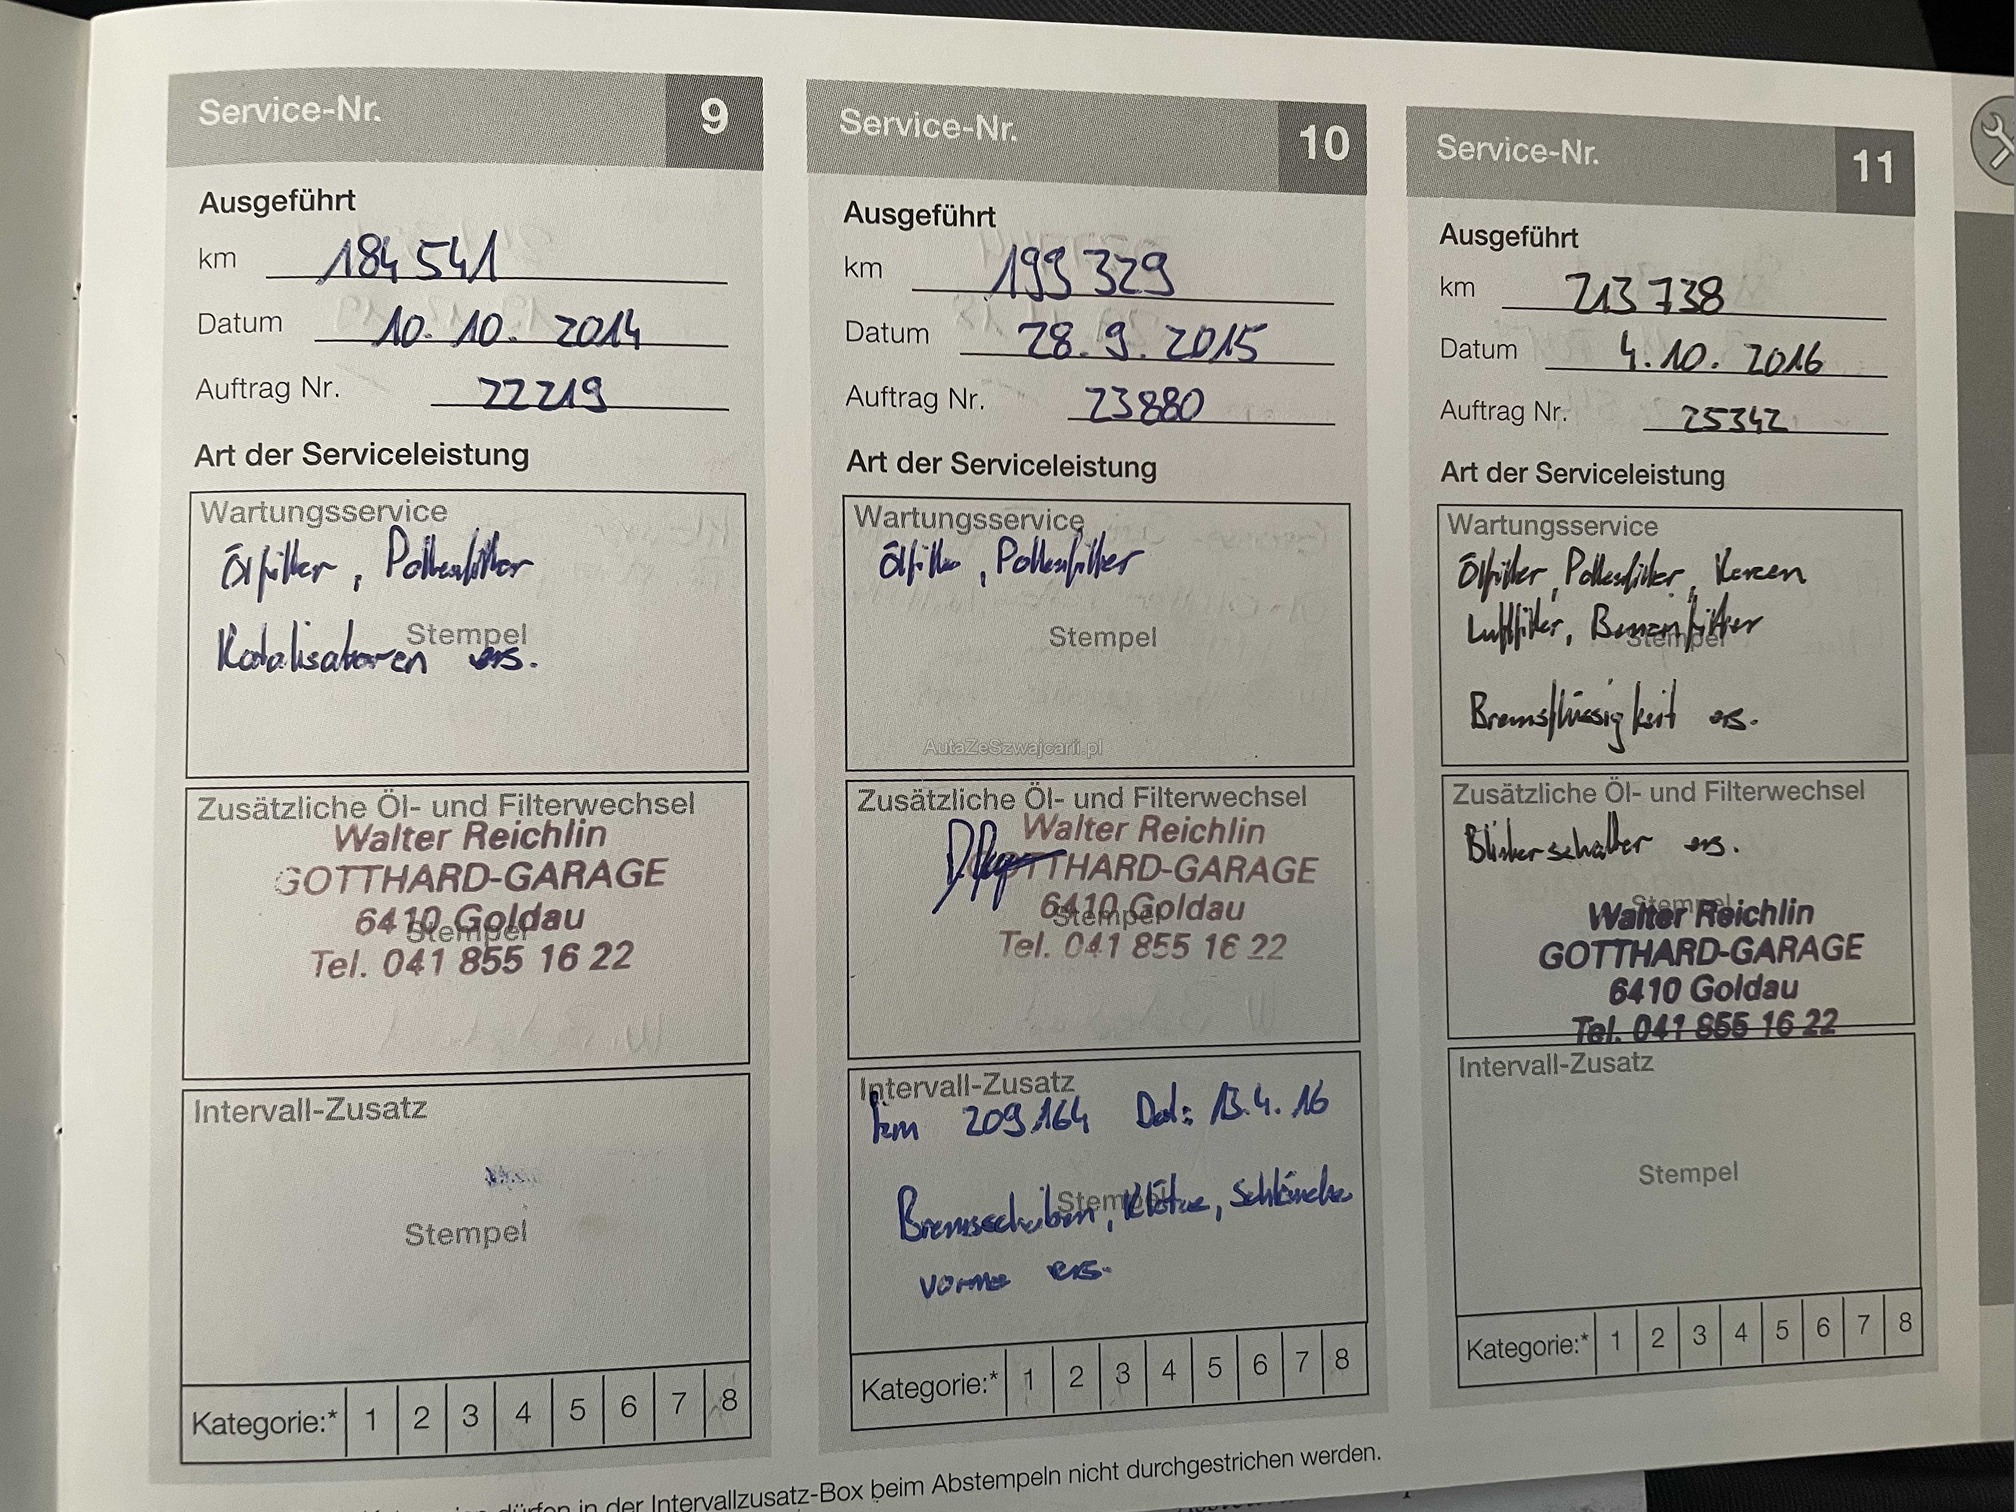 Service-Nr. 9
Ausgeführt
km 184 541
Datum 10. 10. 2014
Auftrag Nr. 22219
Art der Serviceleistung
Wartungsservice
Ölfilter, Pollenfilter
Stempel
Katalisatoren ers.
Zusätzliche Öl- und Filterwechsel
Walter Reichlin
GOTTHARD-GARAGE
6410 Goldau
Stempel
Tel. 041 855 16 22
Intervall-Zusatz
Stempel
Kategorie:* 1 2 3 4 5 6 7 8
Service-Nr. 10
Ausgeführt
km 199 329
Datum 28. 9. 2015
Auftrag Nr. 23880
Art der Serviceleistung
Wartungsservice
Ölfilter, Pollenfilter
Stempel
AutaZeSzwajcarii.pl
Zusätzliche Öl- und Filterwechsel
Walter Reichlin
GOTTHARD-GARAGE
6410 Goldau
Stempel
Tel. 041 855 16 22
Intervall-Zusatz
km 209164 Dat: 13.4.16
Stempel
Bremsscheiben, Klötze, Schläuche
vorne ers.
Kategorie:* 1 2 3 4 5 6 7 8
Service-Nr. 11
Ausgeführt
km 213 738
Datum 4. 10. 2016
Auftrag Nr. 25342
Art der Serviceleistung
Wartungsservice
Ölfilter, Pollenfilter, Kerzen
Luftfilter, Benzinfilter
Stempel
Bremsflüssigkeit ers.
Zusätzliche Öl- und Filterwechsel
Blinkerschalter ers.
Stempel
Walter Reichlin
GOTTHARD-GARAGE
6410 Goldau
Tel. 041 855 16 22
Intervall-Zusatz
Stempel
Kategorie:* 1 2 3 4 5 6 7 8
dürfen in der Intervallzusatz-Box beim Abstempeln nicht durchgestrichen werden.